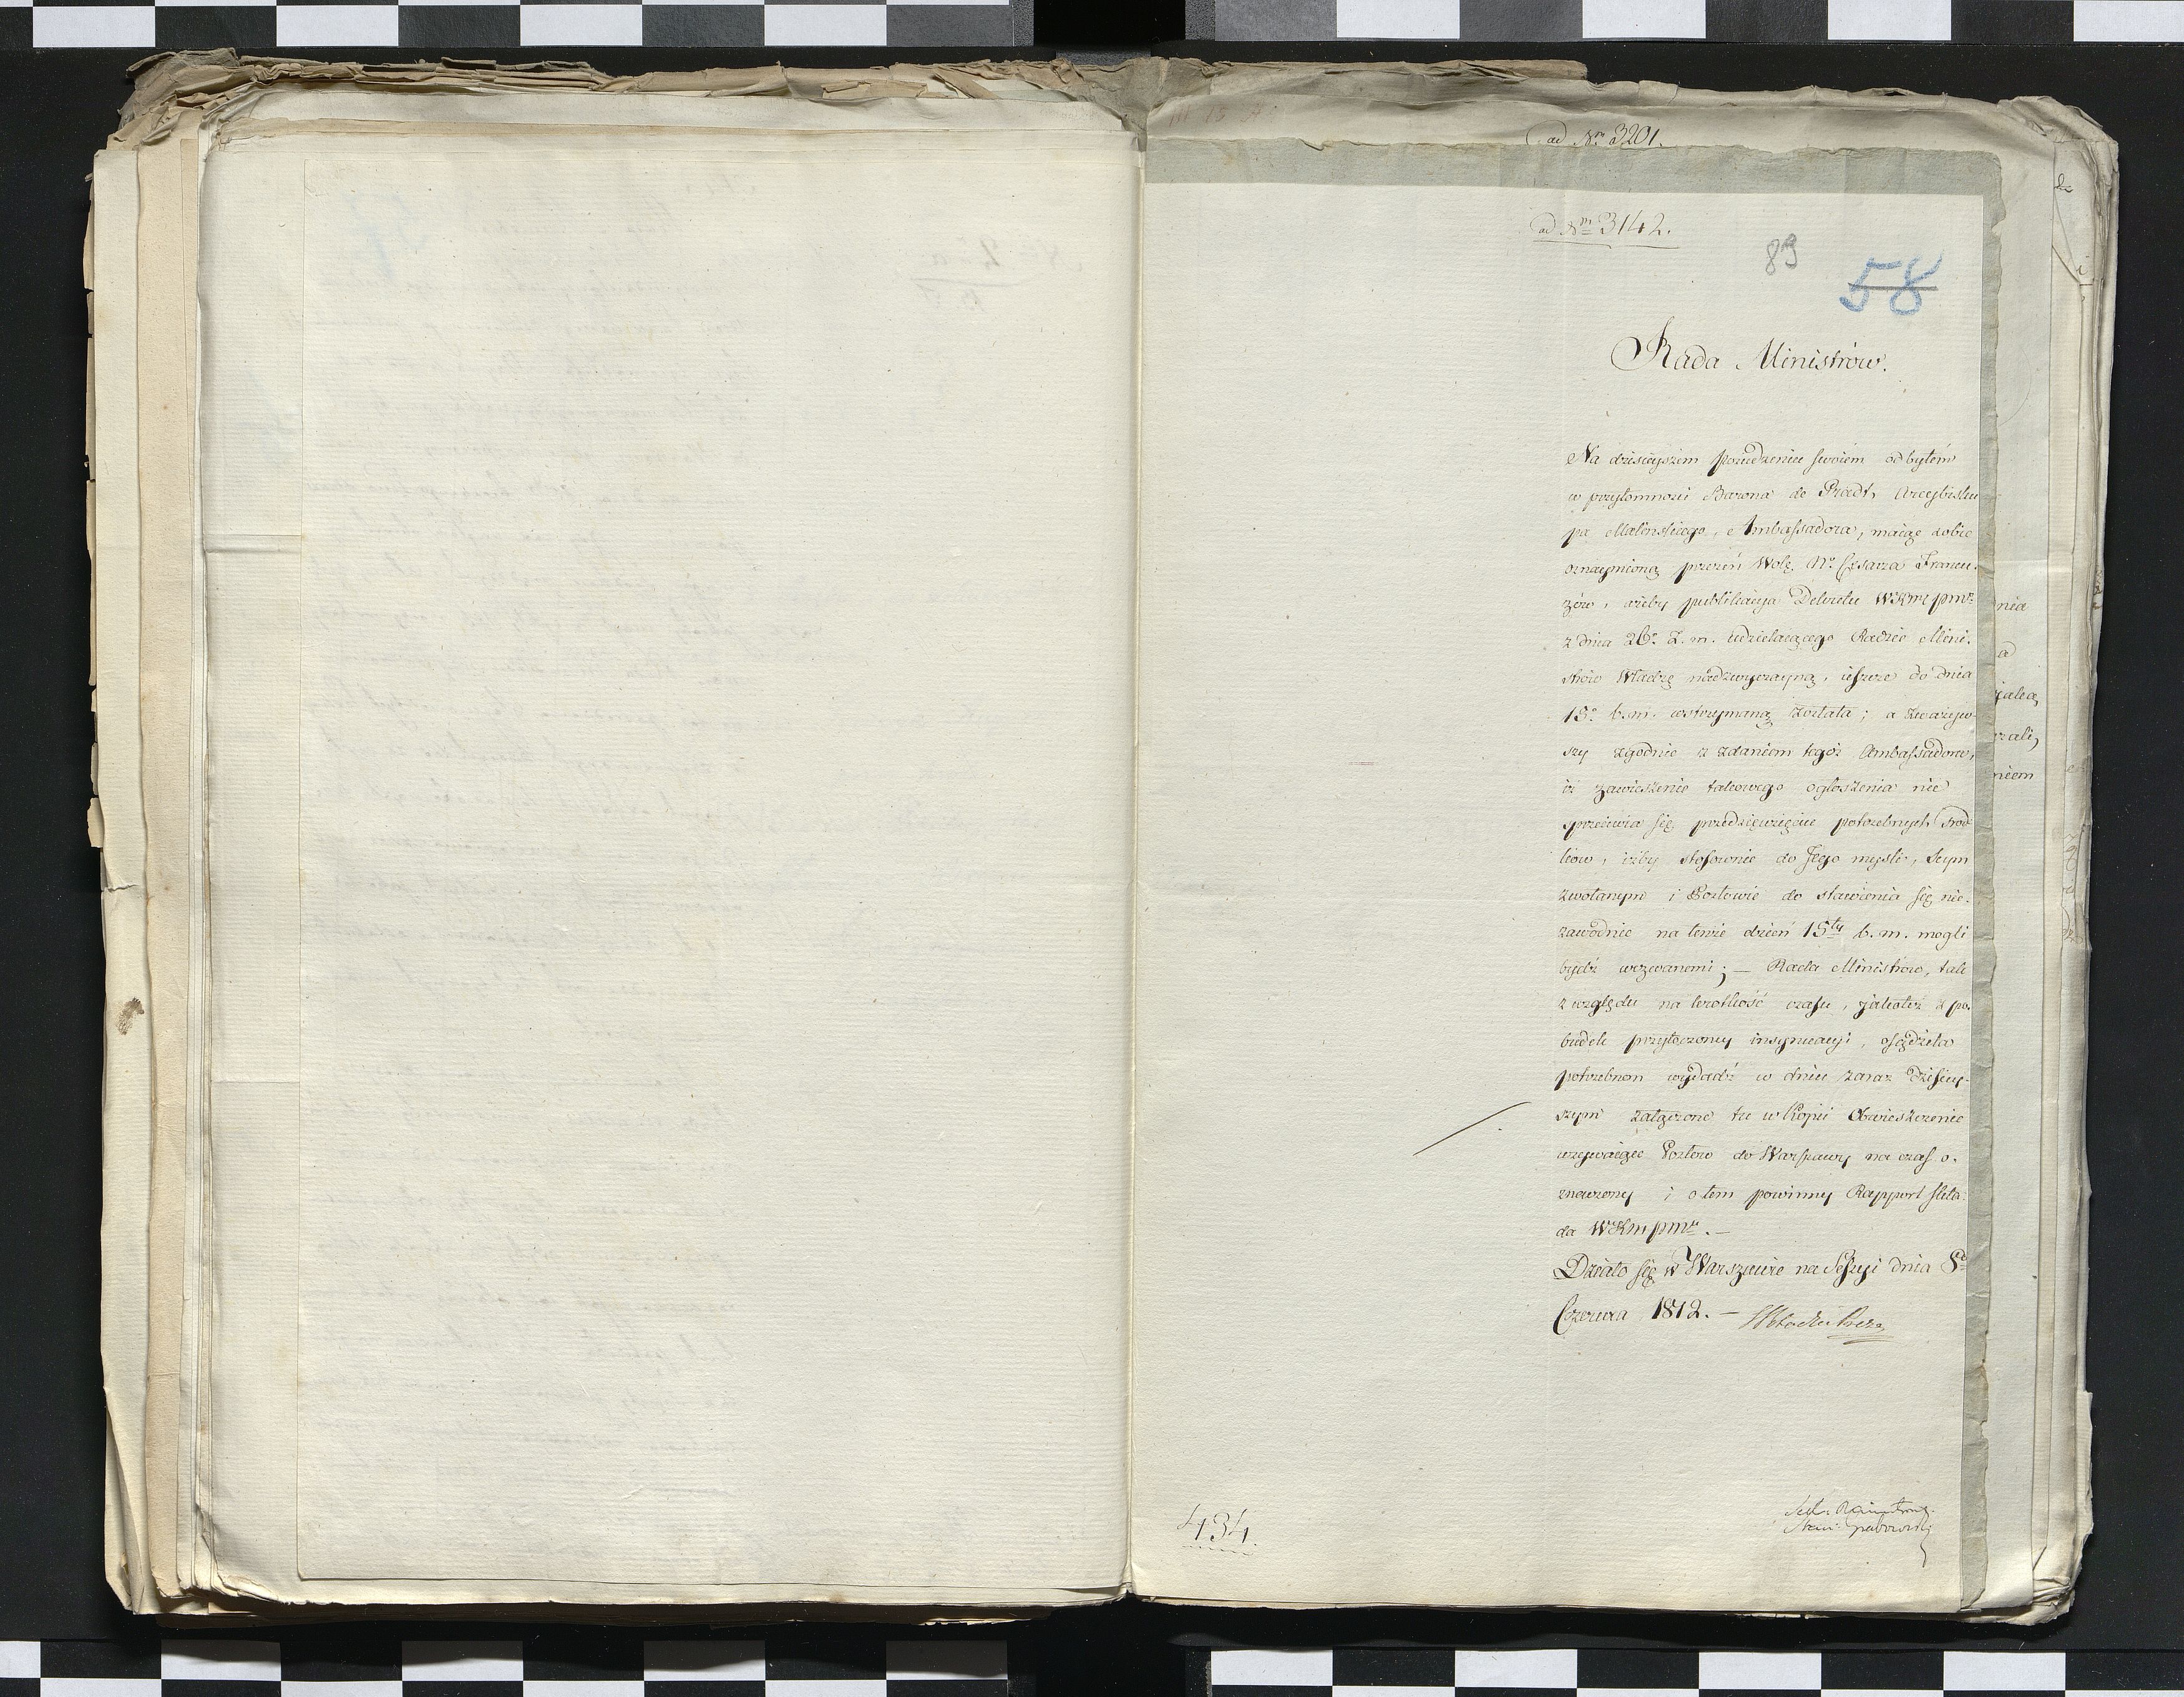 ad Nm 3201.
ad Nm 3142.
89
58
Rada Ministrów.
Na dzisieyszem posiedzeniu swoiém odbytém
w przytomności Barona de Pradt, Arcybisku-
pa Malinskiego, Ambassadora, maiąc sobie
oznaymioną przezeń Wolę No Cesarza Francu-
zów, ażeby publikacya Dekretu WKmcpmo
z dnia 26o z. m. udzielaiącego Radzie Mini-
strów Władzę nadzwyczayną, ieszcze do dnia
15o b. m. wstrzymaną została; a zważyw-
szy zgodnie z zdaniem tegoż Ambassadora,
iż zawieszenie takowego ogłoszenia nie
sprzeciwia się przedsięwzięciu potrzebnych środ
ków, iżby stosownie do Jego myśli, Seym
zwołanym i Posłowie do stawienia się nie-
zawodnie na tenże dzień 15ty b. m. mogli
bydź wezwanemi; — Rada Ministrów, tak
z względu na krótkość czasu, jakoteż z po-
budek przytoczoney insynuacyi, osądziła
potrzebnem wydadź w dniu zaraz dzisiey-
szym załączone tu w Kopii Obwieszczenie
wzywaiące Posłów do Warszawy na czas o-
znaczony i o tem powinny Rapport skła-
da WKmpmu. —
Działo się w Warszawie na Sessyi dnia 8o
Czerwca 1812. —
434.
nia
a
niem